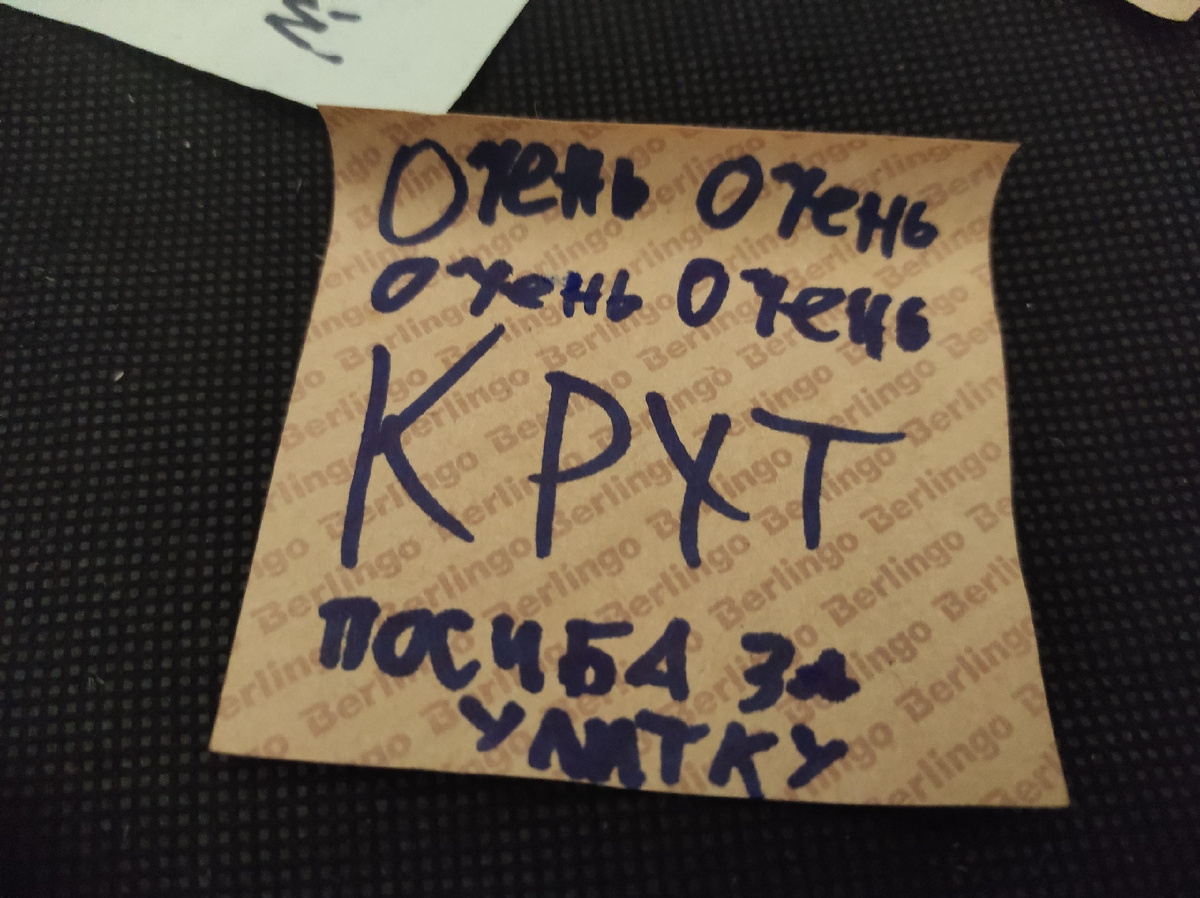 Очень очень
очень очень
КРУТ
ПОСИБА За
УЛИТКУ
Berlingo